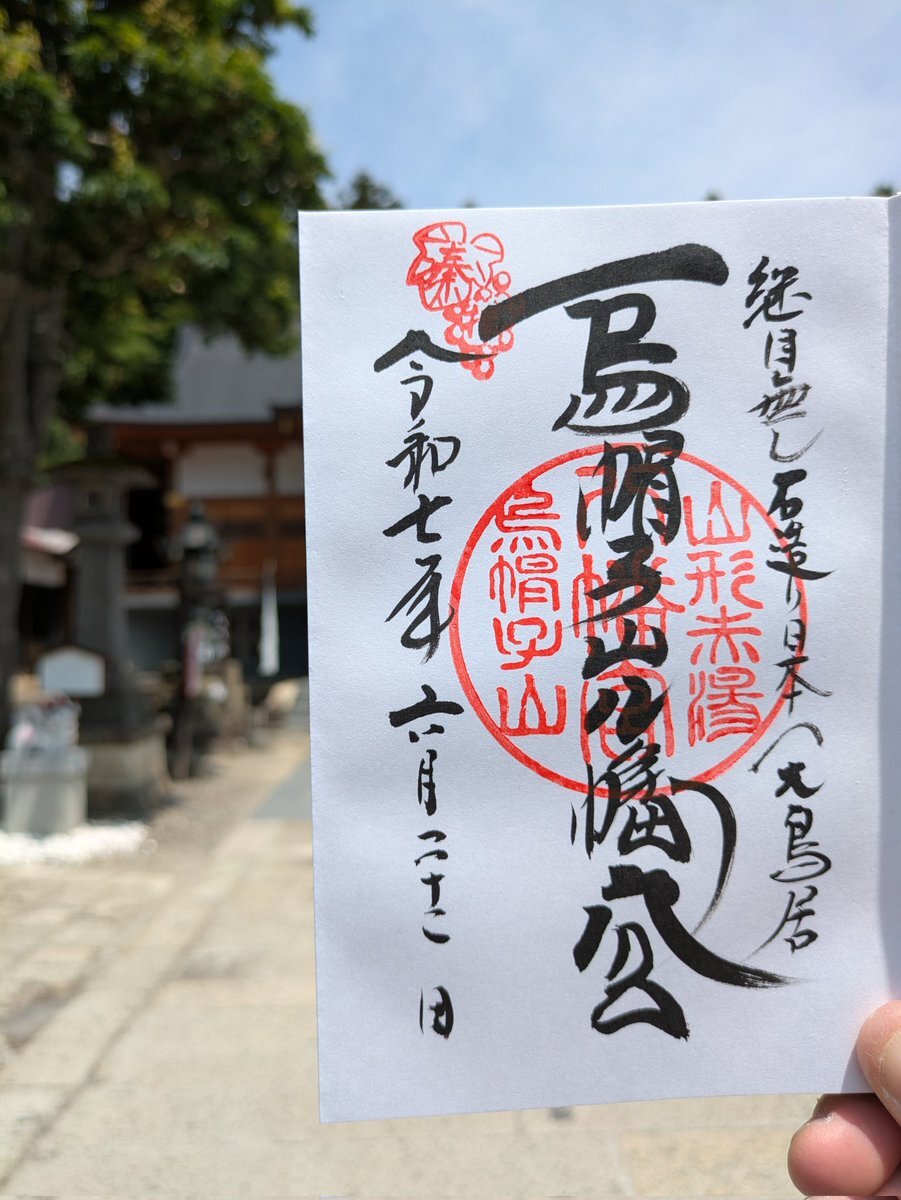 継目無し石造り日本一大鳥居
烏帽子山八幡宮
令和七年六月二十二日
山形赤湯
八幡宮
烏帽子山